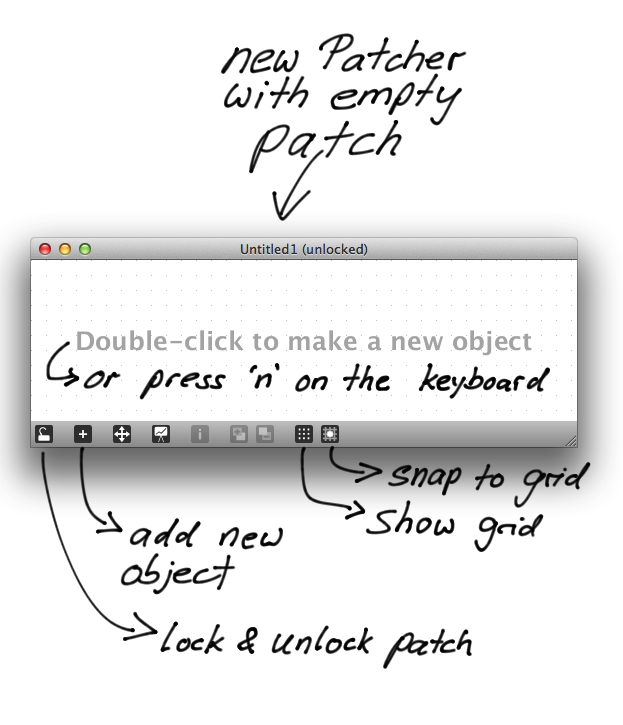 new Patcher
with empty
patch
Untitled1 (unlocked)
Double-click to make a new object
or press 'n' on the keyboard
snap to grid
show grid
add new
object
lock & unlock patch